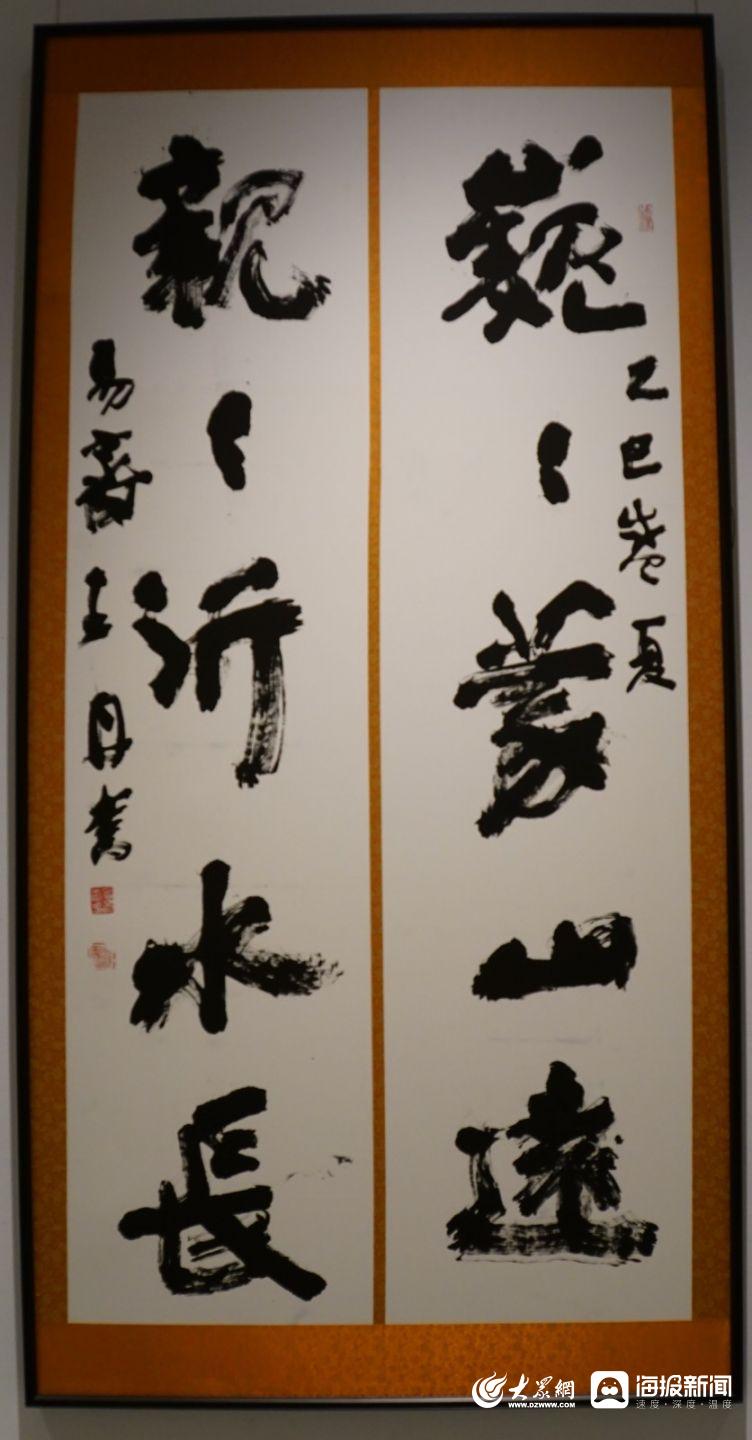 巍〻蒙山遠
乙巳夏
親〻沂水長
易王丹
大眾網
www.dzwww.com
海报新闻
速度·深度·温度